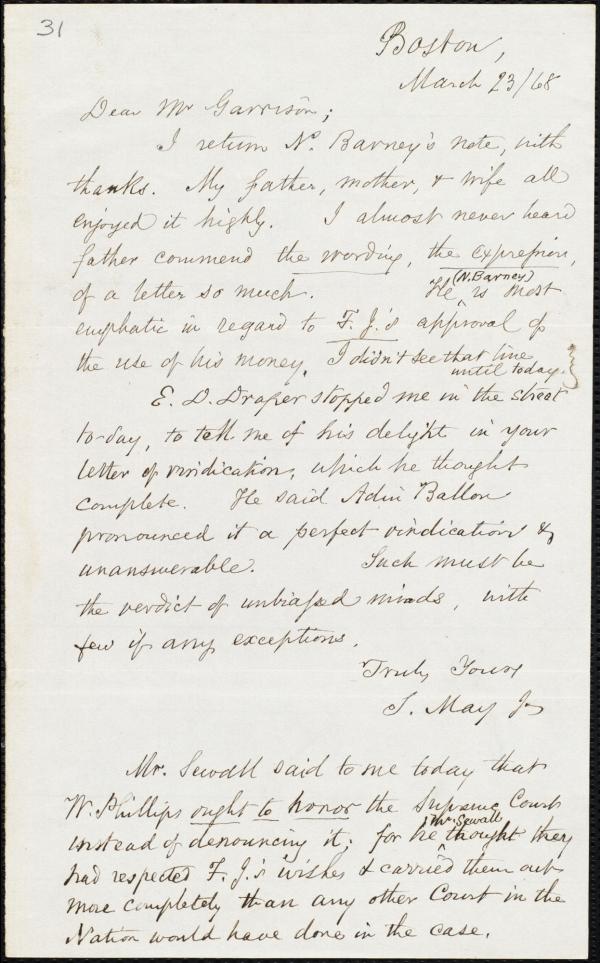 31
Boston,
March 23/68
Dear Mr Garrison;
I return N. Barney's note, with
thanks. My father, mother, & wife all
enjoyed it highly. I almost never heard
father commend the wording, the expression,
of a letter so much. He (N. Barney) is most
emphatic in regard to F. J.'s approval of
the use of his money. I didn't see that line
until today.
E. D. Draper stopped me in the street
to-day, to tell me of his delight in your
letter of vindication, which he thought
complete. He said Adin Ballou
pronounced it a perfect vindication &
unanswerable. Such must be
the verdict of unbiassed minds, with
few if any exceptions.
Truly Yours
S. May Jr
Mr. Sewall said to me today that
W. Phillips ought to honor the Supreme Court
instead of denouncing it; for he Mr. Sewall thought they
had respected F. J.'s wishes & carried them out
more completely than any other Court in the
Nation would have done in the case.